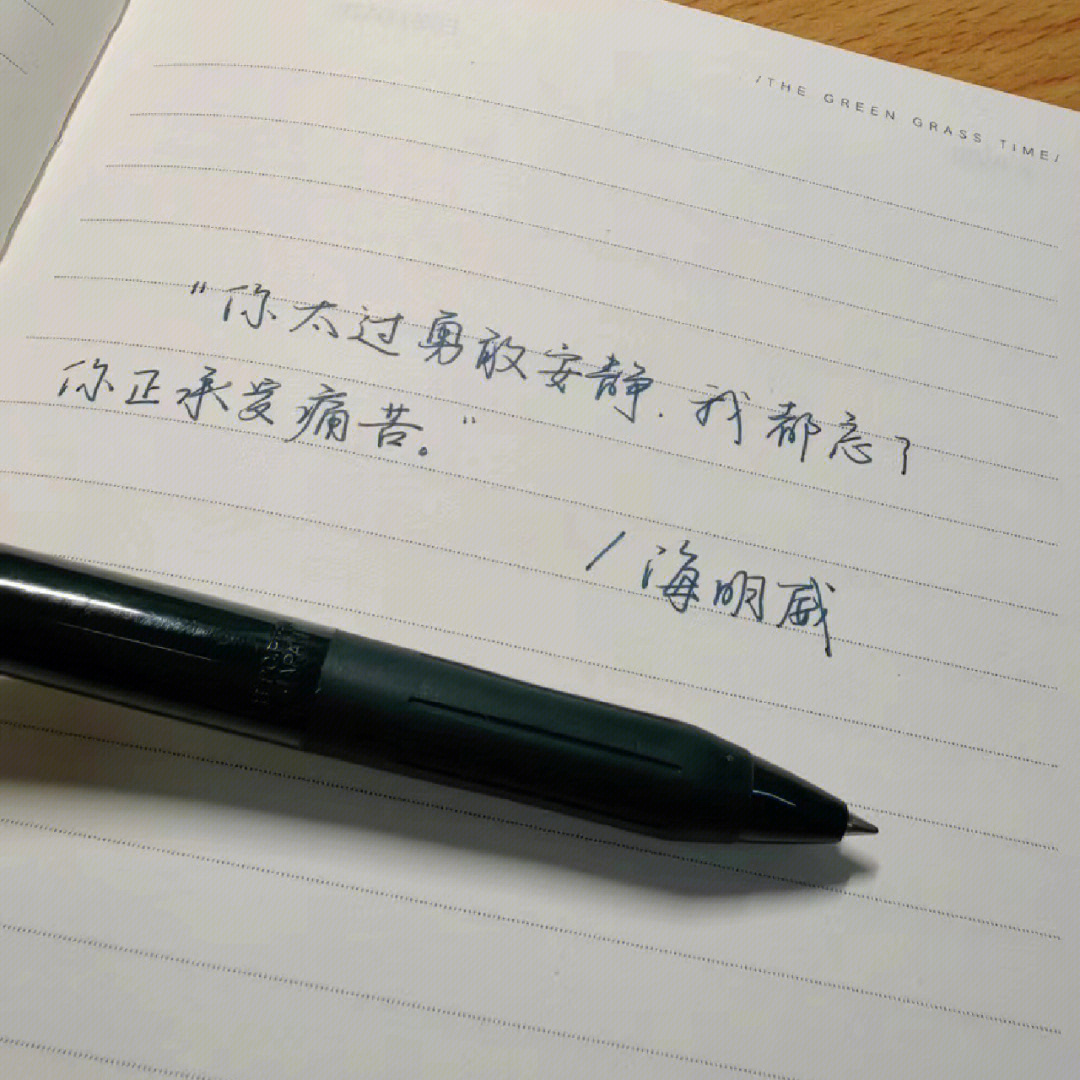 /THE GREEN GRASS TIME/
“你太过勇敢安静,我都忘了
你正承受痛苦。”
/海明威